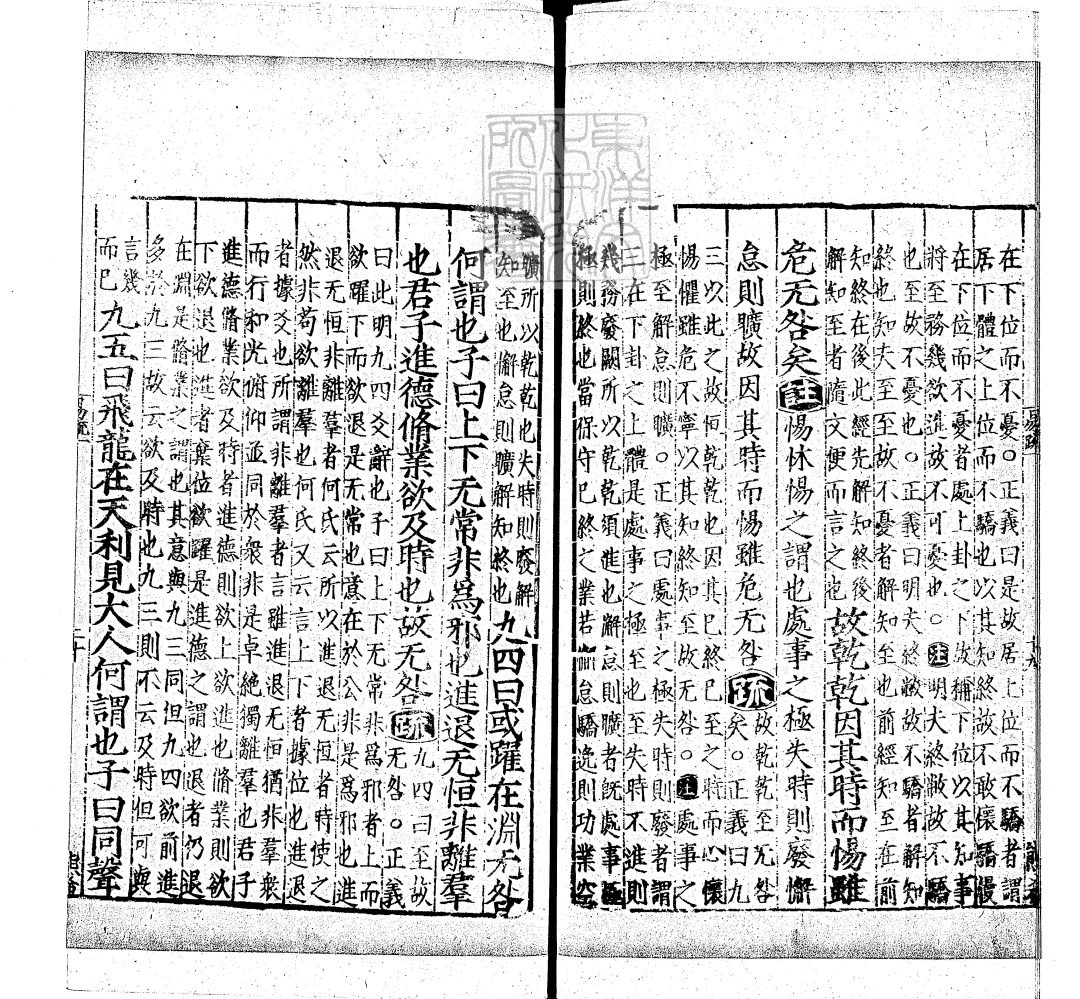 在下位而不憂。○正義曰是故居上位而不驕者謂
居下體之上位而不驕也以其知終故不敢懷驕慢
在下位而不憂者處上卦之下故稱下位以其知事
將至務幾欲進故不可憂也。○注明夫終敝故不驕
也至故不憂也。○正義曰明夫終敝故不驕者解知
終也知夫至至故不憂者解知至也前經知至在前
知終在後此經先解知終後
解知至者隨文便而言之也
故乾乾因其時而惕雖
危无咎矣註惕怵惕之謂也處事之極失時則廢懈
怠則曠故因其時而惕雖危无咎
疏
故乾乾至无咎
矣。○正義曰九
三以此之故恒乾乾也因其已終已至之時而心懷
惕懼雖危不寧以其知終知至故无咎。○注處事之
極至解怠則曠。○正義曰處事之極失時則廢者謂
三在下卦之上體是處事之極至也至失時不進則
幾務廢闕所以乾乾須進也懈怠則曠者既處事極
極則終也當保守已終之業若懈怠驕逸則功業空
曠所以乾乾也失時則廢解
知至也懈怠則曠解知終也
九四曰或躍在淵无咎
何謂也子曰上下无常非爲邪也進退无恒非離羣
也君子進德脩業欲及時也故无咎
疏
九四曰至故
无咎。○正義
曰此明九四爻辭也子曰上下无常非爲邪者上而
欲躍下而欲退是无常也意在於公非是爲邪也進
退无恒非離羣者何氏云所以進退无恒者時使之
然非苟欲離羣也何氏又云言上下者據位也進退
者據爻也所謂非離羣者言雖進退无恒猶非羣衆
而行和光俯仰並同於衆非是卓絶獨離羣也君子
進德脩業欲及時者進德則欲上欲進也脩業則欲
下欲退也進者棄位欲躍是進德之謂也退者仍退
在淵是脩業之謂也其意與九三同但九四欲前進
多於九三故云欲及時也九三則不云及時但可與
言幾
而已
九五曰飛龍在天利見大人何謂也子曰同聲